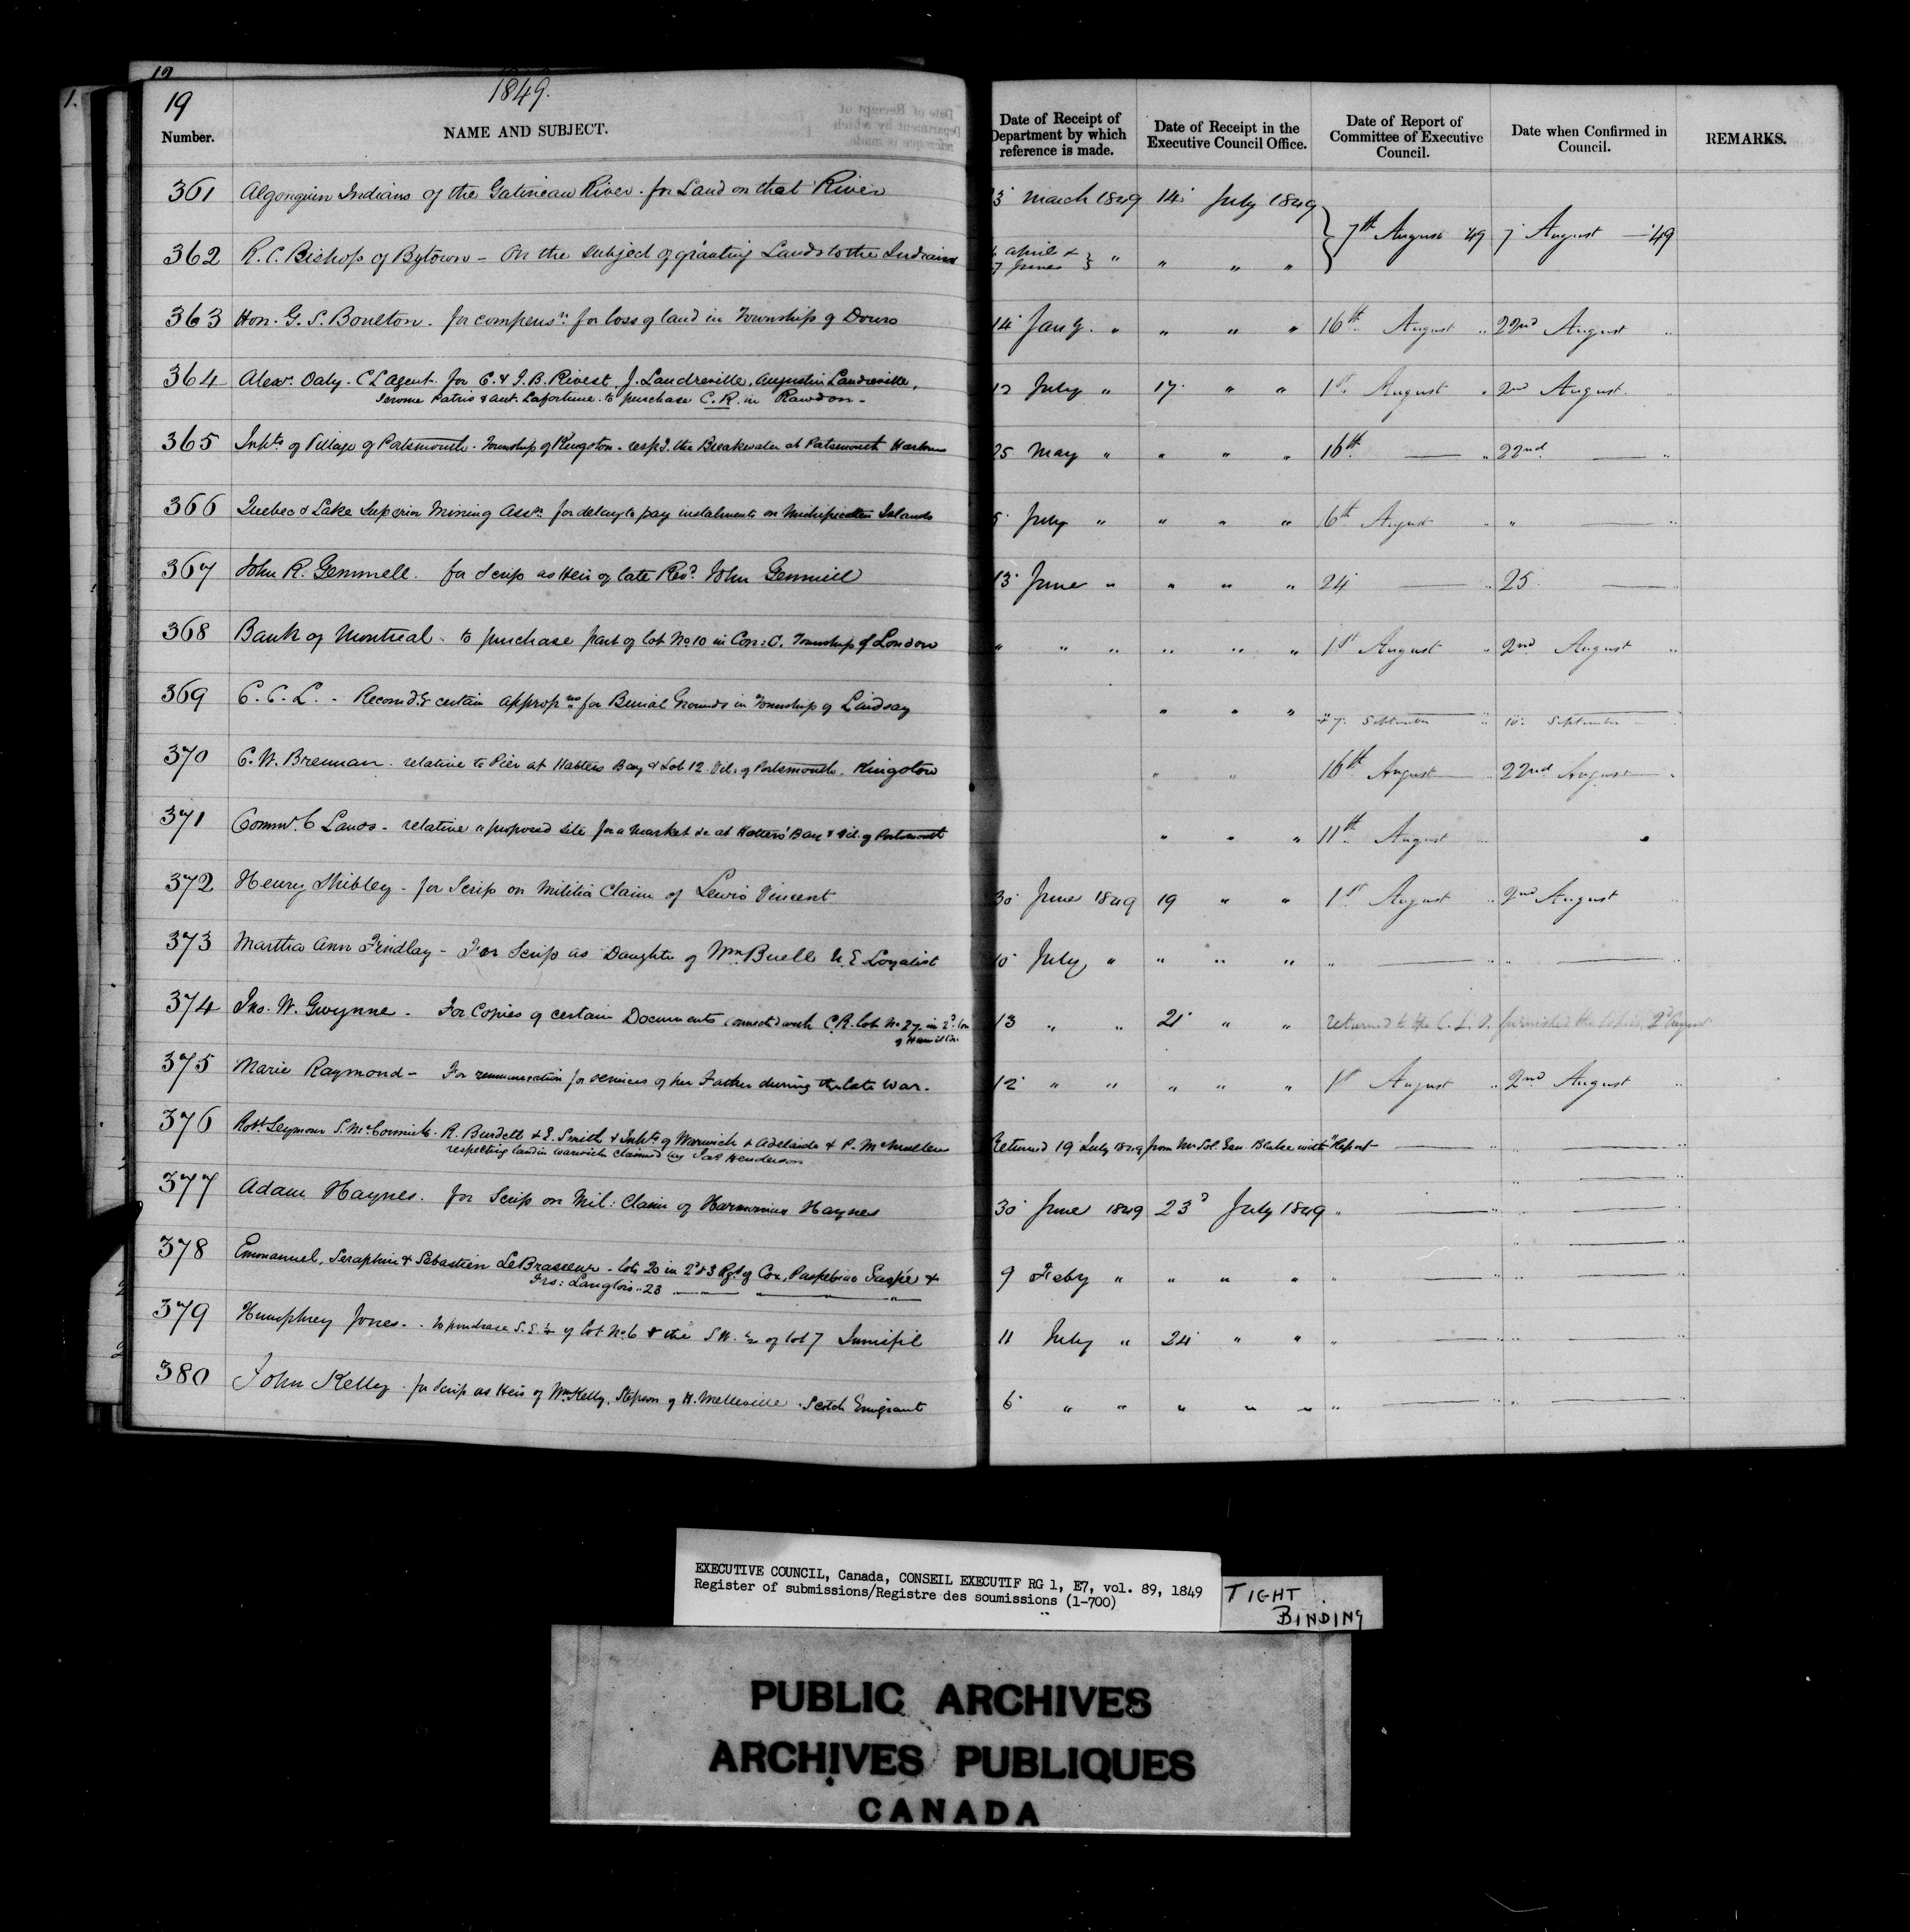 19
1849.
Number. NAME AND SUBJECT. Date of Receipt of Department by which reference is made. Date of Receipt in the Executive Council Office. Date of Report of Committee of Executive Council. Date when Confirmed in Council. REMARKS.
361 Algonquin Indians of the Gatineau River - for Land on that River 3 March 1849 14 July 1849
7th August '49 7 August — '49
362 R. C. Bishop of Bytown - On the subject of granting Lands to the Indians april & 7 June } " " " "
363 Hon. G. S. Boulton. for compensn. for loss of land in Township of Douro 14 Jany. " " " " 16th August " 22nd August "
364 Alexr. Daly. C L Agent. for C. & J. B. Rivest, J. Landreville, Augustin Landreville, 12 July " 17 " " 1st August " 2nd August
Jerome Patrio & Ant. Lafortune. to purchase C. R. in Rawdon -
365 Inhts of Village of Portsmouth - Township of Kingston - respg. the Breakwater at Portsmouth Harbour 25 May " " " " 16th — " 22nd — "
366 Quebec & Lake Superior Mining Assn. for delay to pay instalments on Michipicoten Islands 5 July " " " " 6th August " " — "
367 John R. Gemmell. for Scrip as Heir of late Revd. John Gemmill 13 June " " " " 24 — " 25 — "
368 Bank of Montreal - to purchase part of lot No. 10 in Con: C. Township of London " " " " " " 1st August " 2nd August "
369 C. C. L. - Recomdg certain appropns for Burial Grounds in Township of Lindsay " " " 7 September " 10 September
370 C. W. Brennan - relative to Pier at Hatters Bay & Lot 12 Vil. of Portsmouth, Kingston " " 16th August " 22nd August
371 Commr. C Lands - relative a proposed site for a Market &c at Hatters' Bay & Vil. of Portsmouth " " " 11th August "
372 Henry Shibley - for Scrip on Militia Claim of Lewis Vincent 30 June 1849 19 " " 1st August " 2nd August "
373 Martha Ann Findlay - For Scrip as Daughter of Wm. Buell U. E Loyalist 10 July " " " " " — " " — "
374 Jno. W. Gwynne - For Copies of certain Documents connected with C.R. lot No 27 in 2d. Con 13 " " 21 " " returned to the C. L. D. furnished the Copies 2d August
of Hamilton.
375 Marie Raymond - For remuneration for services of her Father during the late War. 12 " " " " " 1st August " 2nd August "
376 Robt Seymour S. McCormick - R. Burdett & E. Smith & Inhts of Warwick & Adelaide & P. McMullen Returned 19 July 1849 from Mr Sol. Gen. Blake with Report — " " — "
respecting land in Warwick claimed by Jas Henderson
377 Adam Haynes. for Scrip on Mil: Claim of Harmonius Haynes 30 June 1849 23d July 1849 " — " " — "
378 Emmanuel, Seraphin & Sebastien LeBrasseur - lots 20 in 2d & 3 Rgs of Cox, Paspebiac Gaspé & 9 Feby " " " " " — " " — "
Frs: Langlois " 23 — — "
379 Humphrey Jones - to purchase S. E. ½ of lot No 6 & the S W. ½ of lot 7 Innisfil 11 July " 24 " " " — " " — "
380 John Kelly - for Scrip as Heir of Wm Kelly, Stepson of H. Melleville. Scotch Emigrant 6 " " " " " " — " " — "
EXECUTIVE COUNCIL, Canada, CONSEIL EXECUTIF RG 1, E7, vol. 89, 1849
Register of submissions/Registre des soumissions (1-700)
TIGHT
BINDING
PUBLIC ARCHIVES
ARCHIVES PUBLIQUES
CANADA